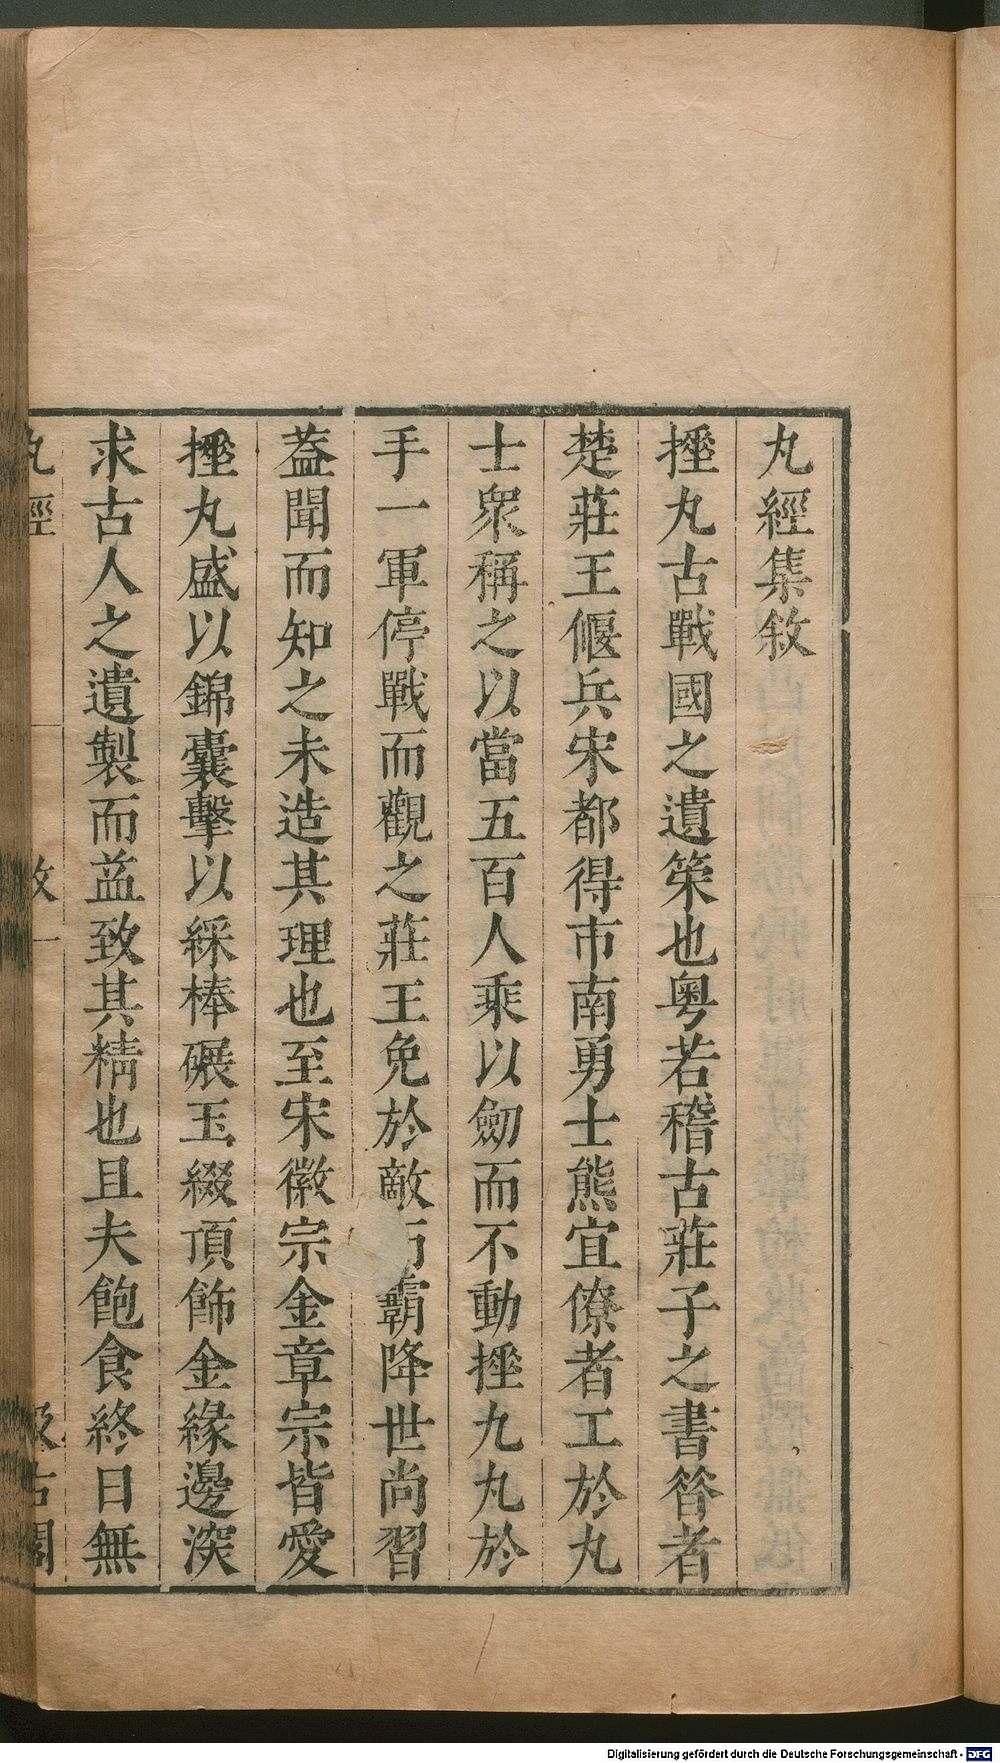 丸經集敘
捶丸古戰國之遺策也粤若稽古莊子之書昝者
楚莊王偃兵宋都得市南勇士熊宜僚者工於丸
士衆稱之以當五百人乘以劒而不動捶九丸於
手一軍停戰而觀之莊王免於敵而霸降世尚習
葢聞而知之未造其理也至宋徽宗金章宗皆愛
捶丸盛以錦囊擊以綵棒碾玉綴頂飾金緣邊深
求古人之遺製而益致其精也且夫飽食終日無
丸經 敘 一 汲古閣
Digitalisierung gefördert durch die Deutsche Forschungsgemeinschaft - DFG